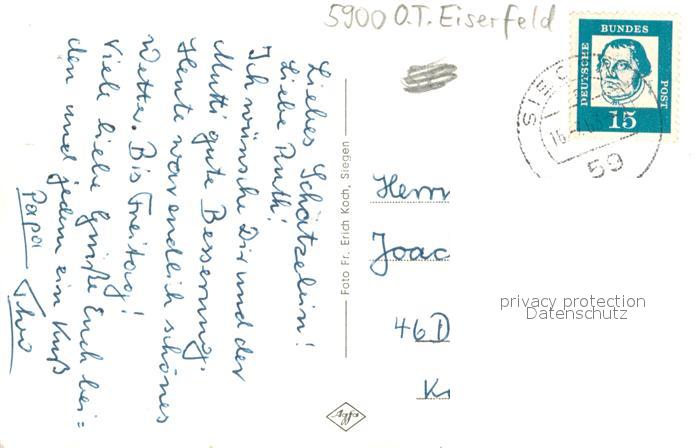 5900 O.T. Eiserfeld
DEUTSCHE
BUNDES
POST
15
SIEG
59
Liebes Schätzelein!
Liebe Ruth!
Ich wünsche Dir und der
Mutti gute Besserung.
Heute war endlich schönes
Wetter. Bis Freitag!
Viele liebe Grüße Euch bei=
den und jedem ein Kuß
Papa
Foto Fr. Erich Koch, Siegen
Agfa
Herrn
Joac
46 D
privacy protection
Datenschutz